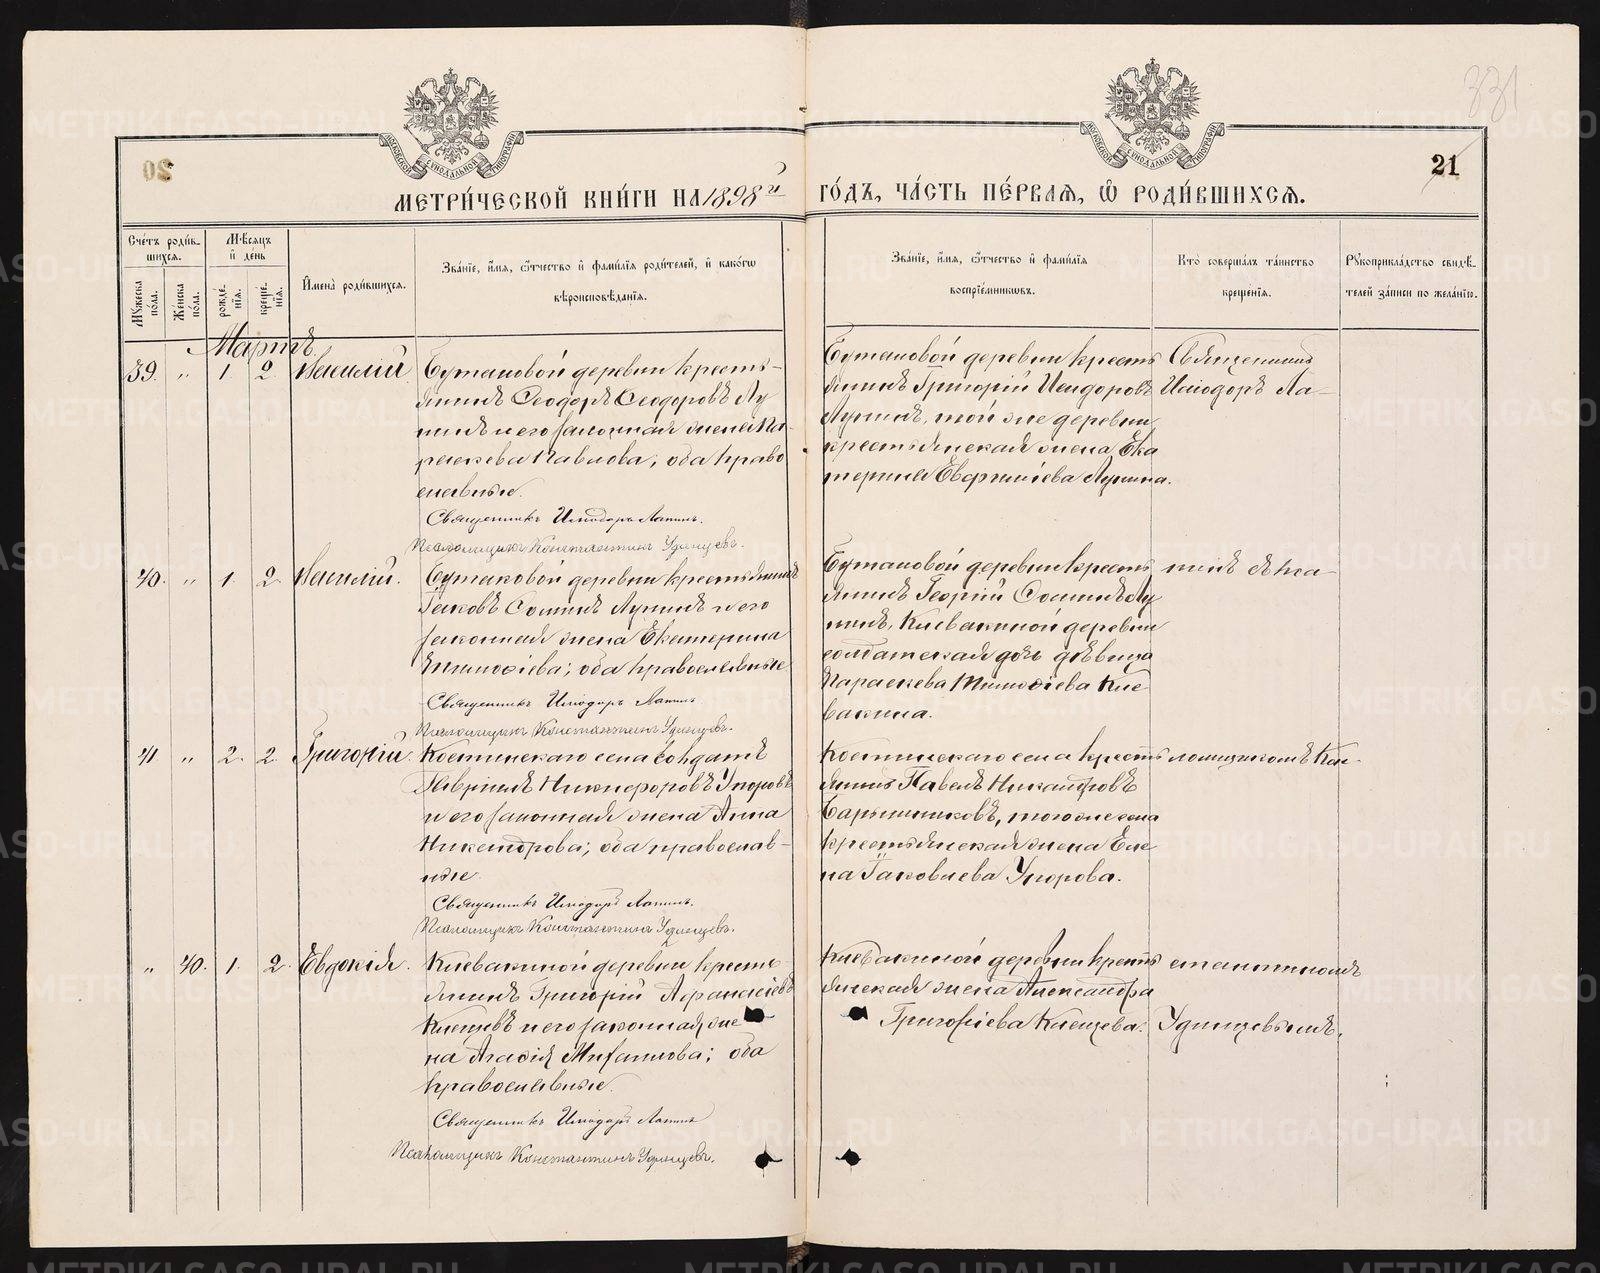 331
МОСКОВСКОЙ СѴНОДАЛЬНОЙ ТИПОГРАФІИ
МОСКОВСКОЙ СѴНОДАЛЬНОЙ ТИПОГРАФІИ
20
21
МЕТРИ́ЧЕСКОЙ КНИ́ГИ НА 1898й ГО́ДЪ, ЧА́СТЬ ПЕ́РВАЯ, Ѽ РОДИ́ВШИХСЯ.
Сче́тъ роди́в-
шихся.
Мѣсяцъ
и҆ де́нь
Мꙋжеска по́ла.
Же́нска по́ла.
рожде́нїя.
креще́нїя.
И҆мена̀ роди́вшихся.
Зва́нїе, и҆́мя, ѻ҆́тчество и҆ фами́лїя роди́телей, и҆ како́гѡ
вѣроисповѣ́данїя.
Зва́нїе, и҆́мя, ѻ҆́тчество и҆ фами́лїя
воспрїе́мникѡвъ.
Кто̀ соверша́лъ та́инство
креще́нїя.
Рꙋкоприкла́дство свидѣ́-
телей за́писи по жела́нїю.
Мартъ.
39. " 1 2 Василій
Бутаковой деревни кресть-
янинъ Ѳеодоръ Ѳеодоровъ Лу
нинъ и его законная жена Па-
раскева Павлова; оба право
славные.
Священникъ Исидоръ Лапинъ.
Псаломщикъ Константинъ Удинцевъ.
Бутаковой деревни кресть
янинъ Григорій Исидоровъ
Лунинъ, той же деревни
крестьянская жена Ека
терина Лунина.
Священникъ
Исидоръ Ла-
40. " 1. 2. Василій.
Бутаковой деревни крестьянинъ
Іаковъ Лунинъ и его
законная жена Екатерина
оба православные
Священникъ Исидоръ Лапинъ
Псаломщикъ Константинъ Удинцевъ.
Бутаковой деревни кресть
янинъ Георгій Лу
нинъ, Клевакиной деревни
солдатская дочь дѣвица
Параскева Тимоѳіева Кле
вакина.
пинъ съ пса-
41 " 2. 2. Григорій.
Костинскаго села солдатъ
Гавріилъ Никифоровъ Упоровъ
и его законная жена Анна
оба православ-
ные.
Священникъ Исидоръ Лапинъ.
Псаломщикъ Константинъ Удинцевъ.
Костинскаго села кресть
янинъ Павелъ Никандровъ
Барышниковъ, того же села
крестьянская жена Еле
на Іаковлева Упорова.
ломщикомъ Кон-
" 40. 1. 2. Евдокія.
Клевакиной деревни кресть-
янинъ Григорій Аѳанасіевъ
Клещевъ и его законная же
на Агаѳія оба
православные.
Священникъ Исидоръ Лапинъ
Псаломщикъ Константинъ Удинцевъ.
Клевакиной деревни кресть
янская жена Александра
Григоріева Клещева.
стантиномъ
Удинцевымъ.